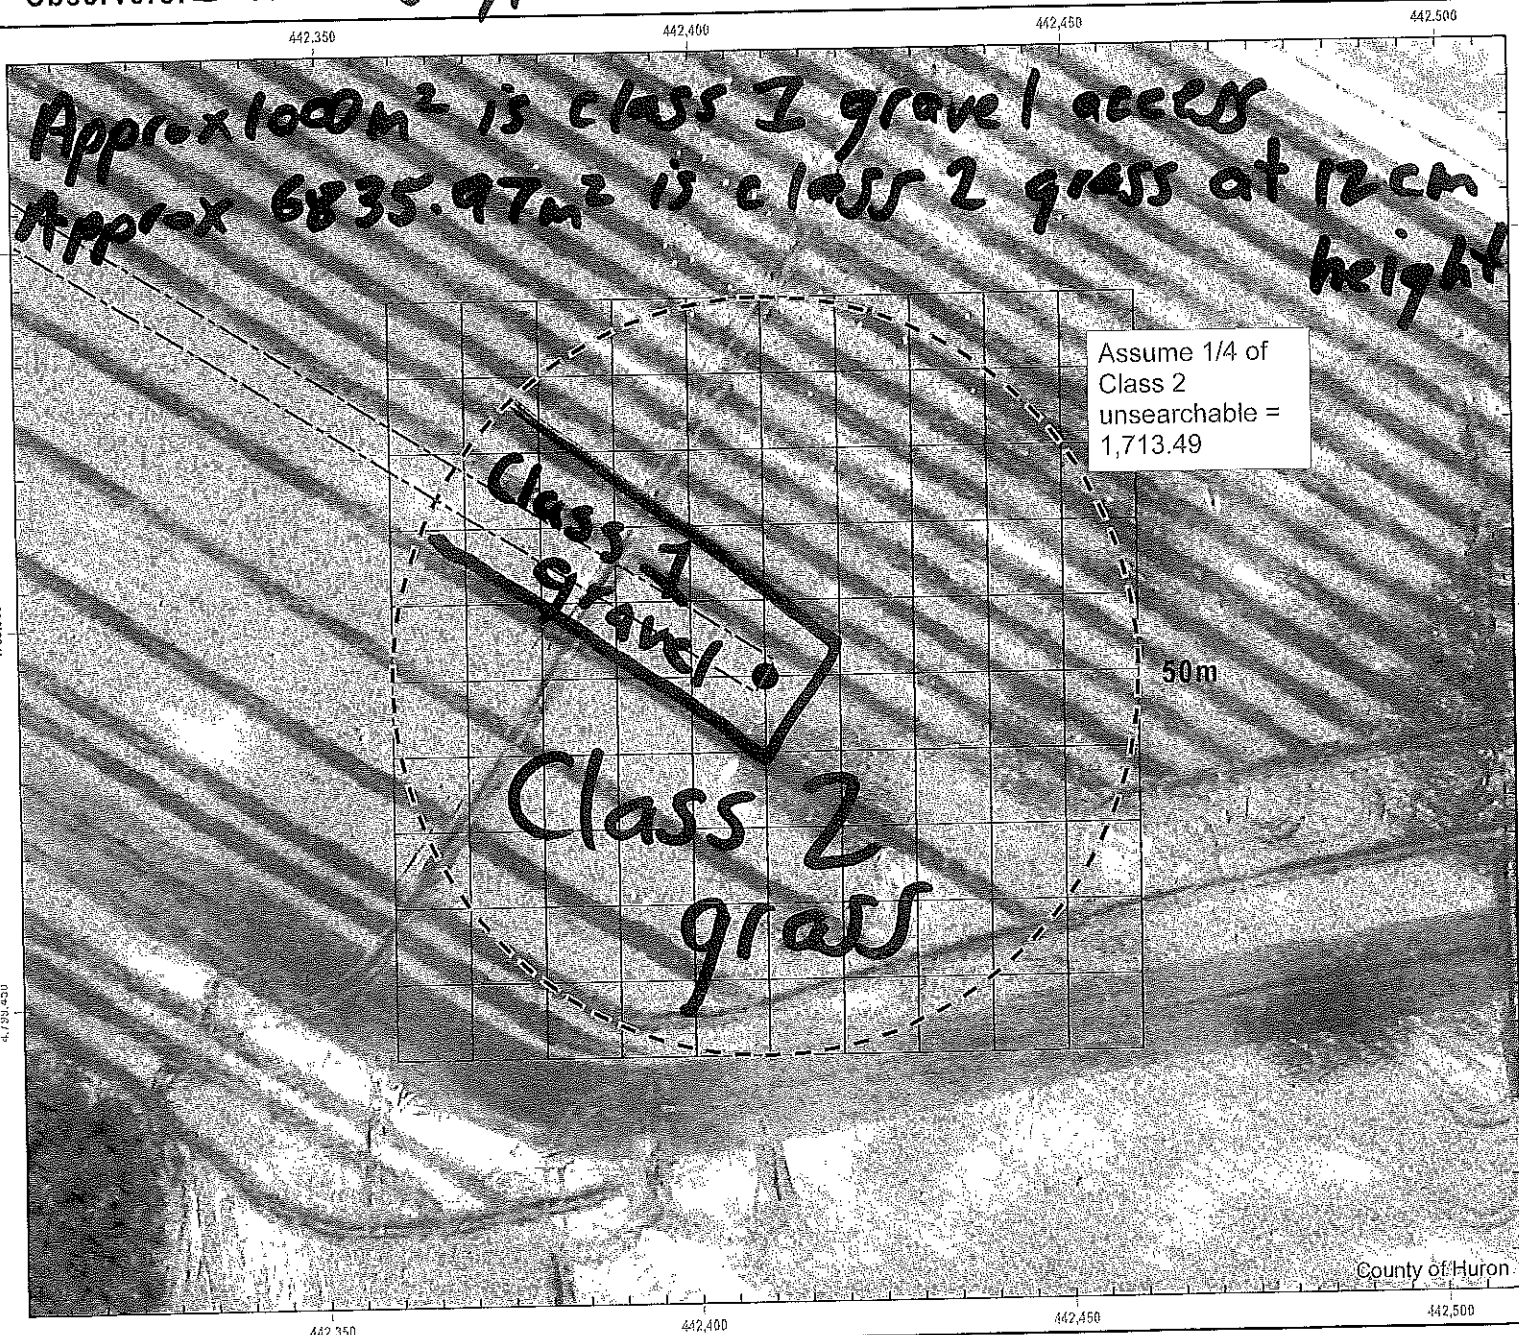 442,350
442,400
442,450
442,500
Approx 1000m² is class 1 gravel access
Approx 6835.97m² is class 2 grass at 12cm
height
Assume 1/4 of
Class 2
unsearchable =
1,713.49
Class 1
gravel
50m
Class 2
grass
County of Huron
442,350
442,400
442,450
442,500